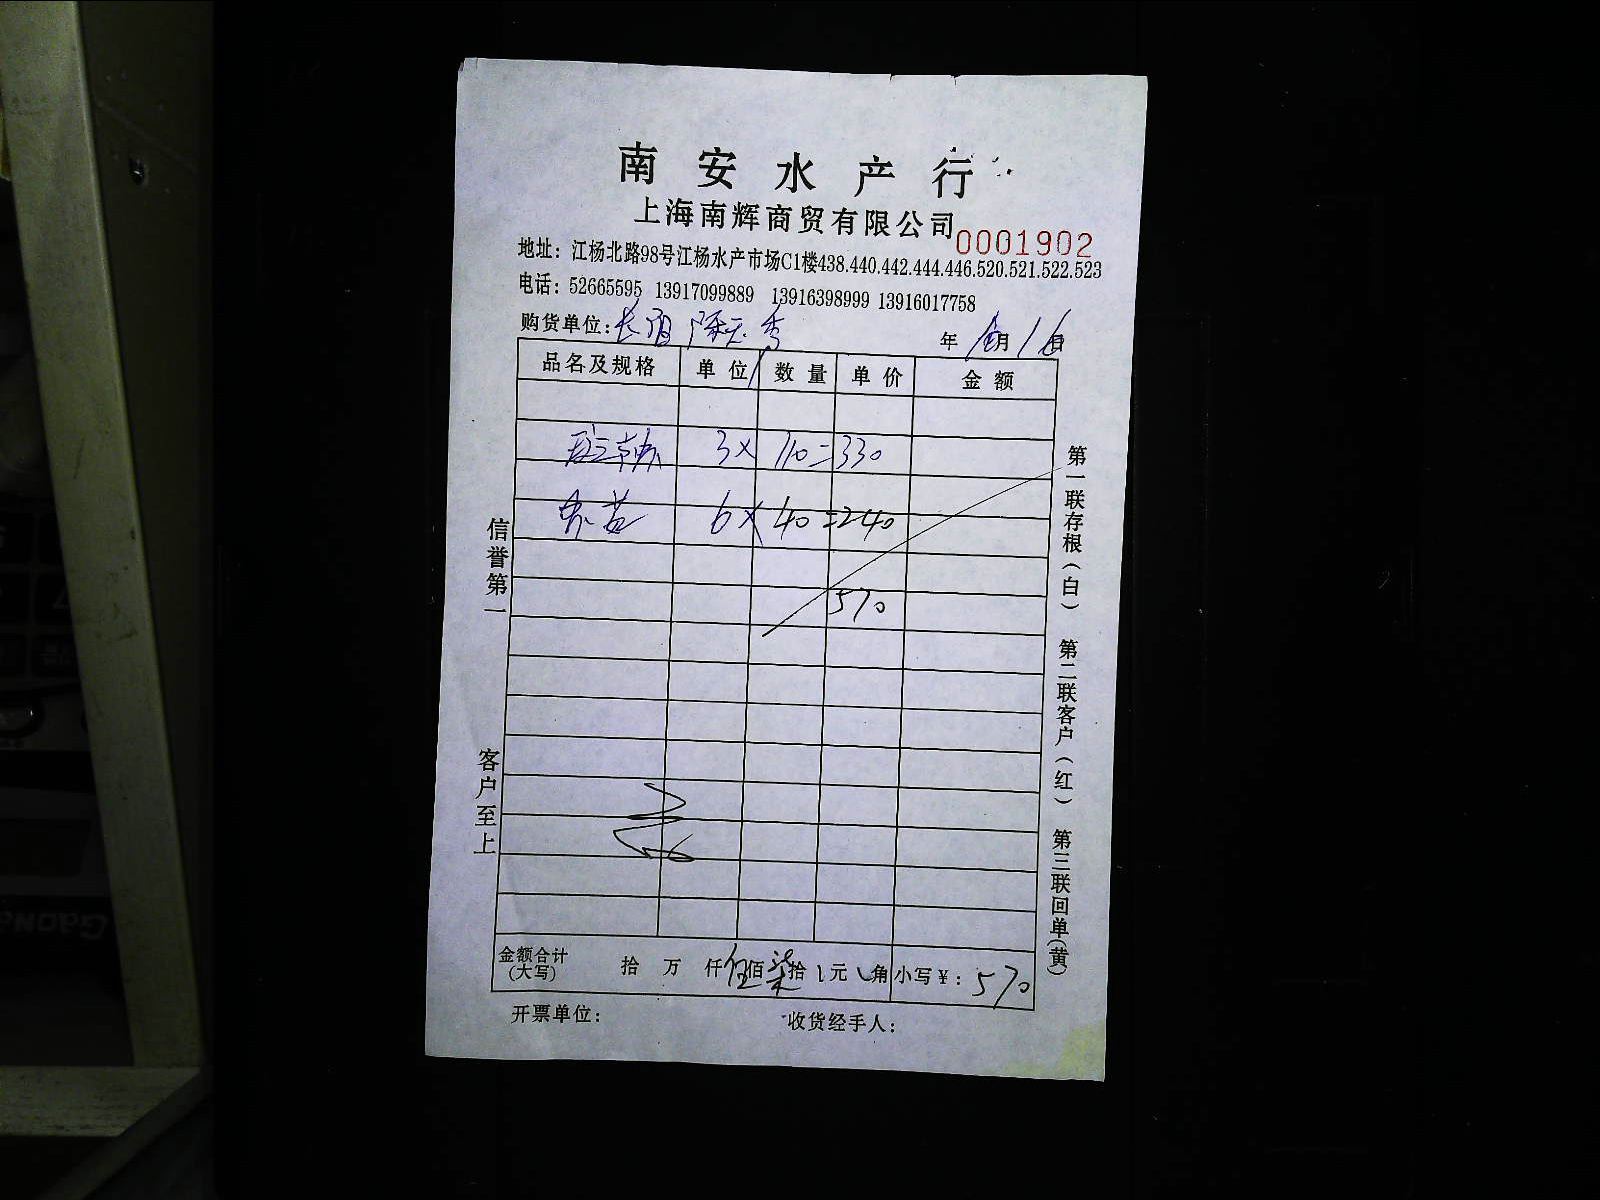 南安水产行
上海南辉商贸有限公司
0001902
地址：江杨北路98号江杨水产市场C1楼438.440.442.444.446.520.521.522.523
电话：52665595 13917099889 13916398999 13916017758
购货单位：
年 月 16日
品名及规格 单位 数量 单价 金额
3× 110=330
6× 40=240
570
信誉第一
客户至上
第一联存根(白)
第二联客户(红)
第三联回单(黄)
金额合计(大写) 拾 万 仟伍佰柒拾 元 角 小写￥：570
开票单位：
收货经手人：